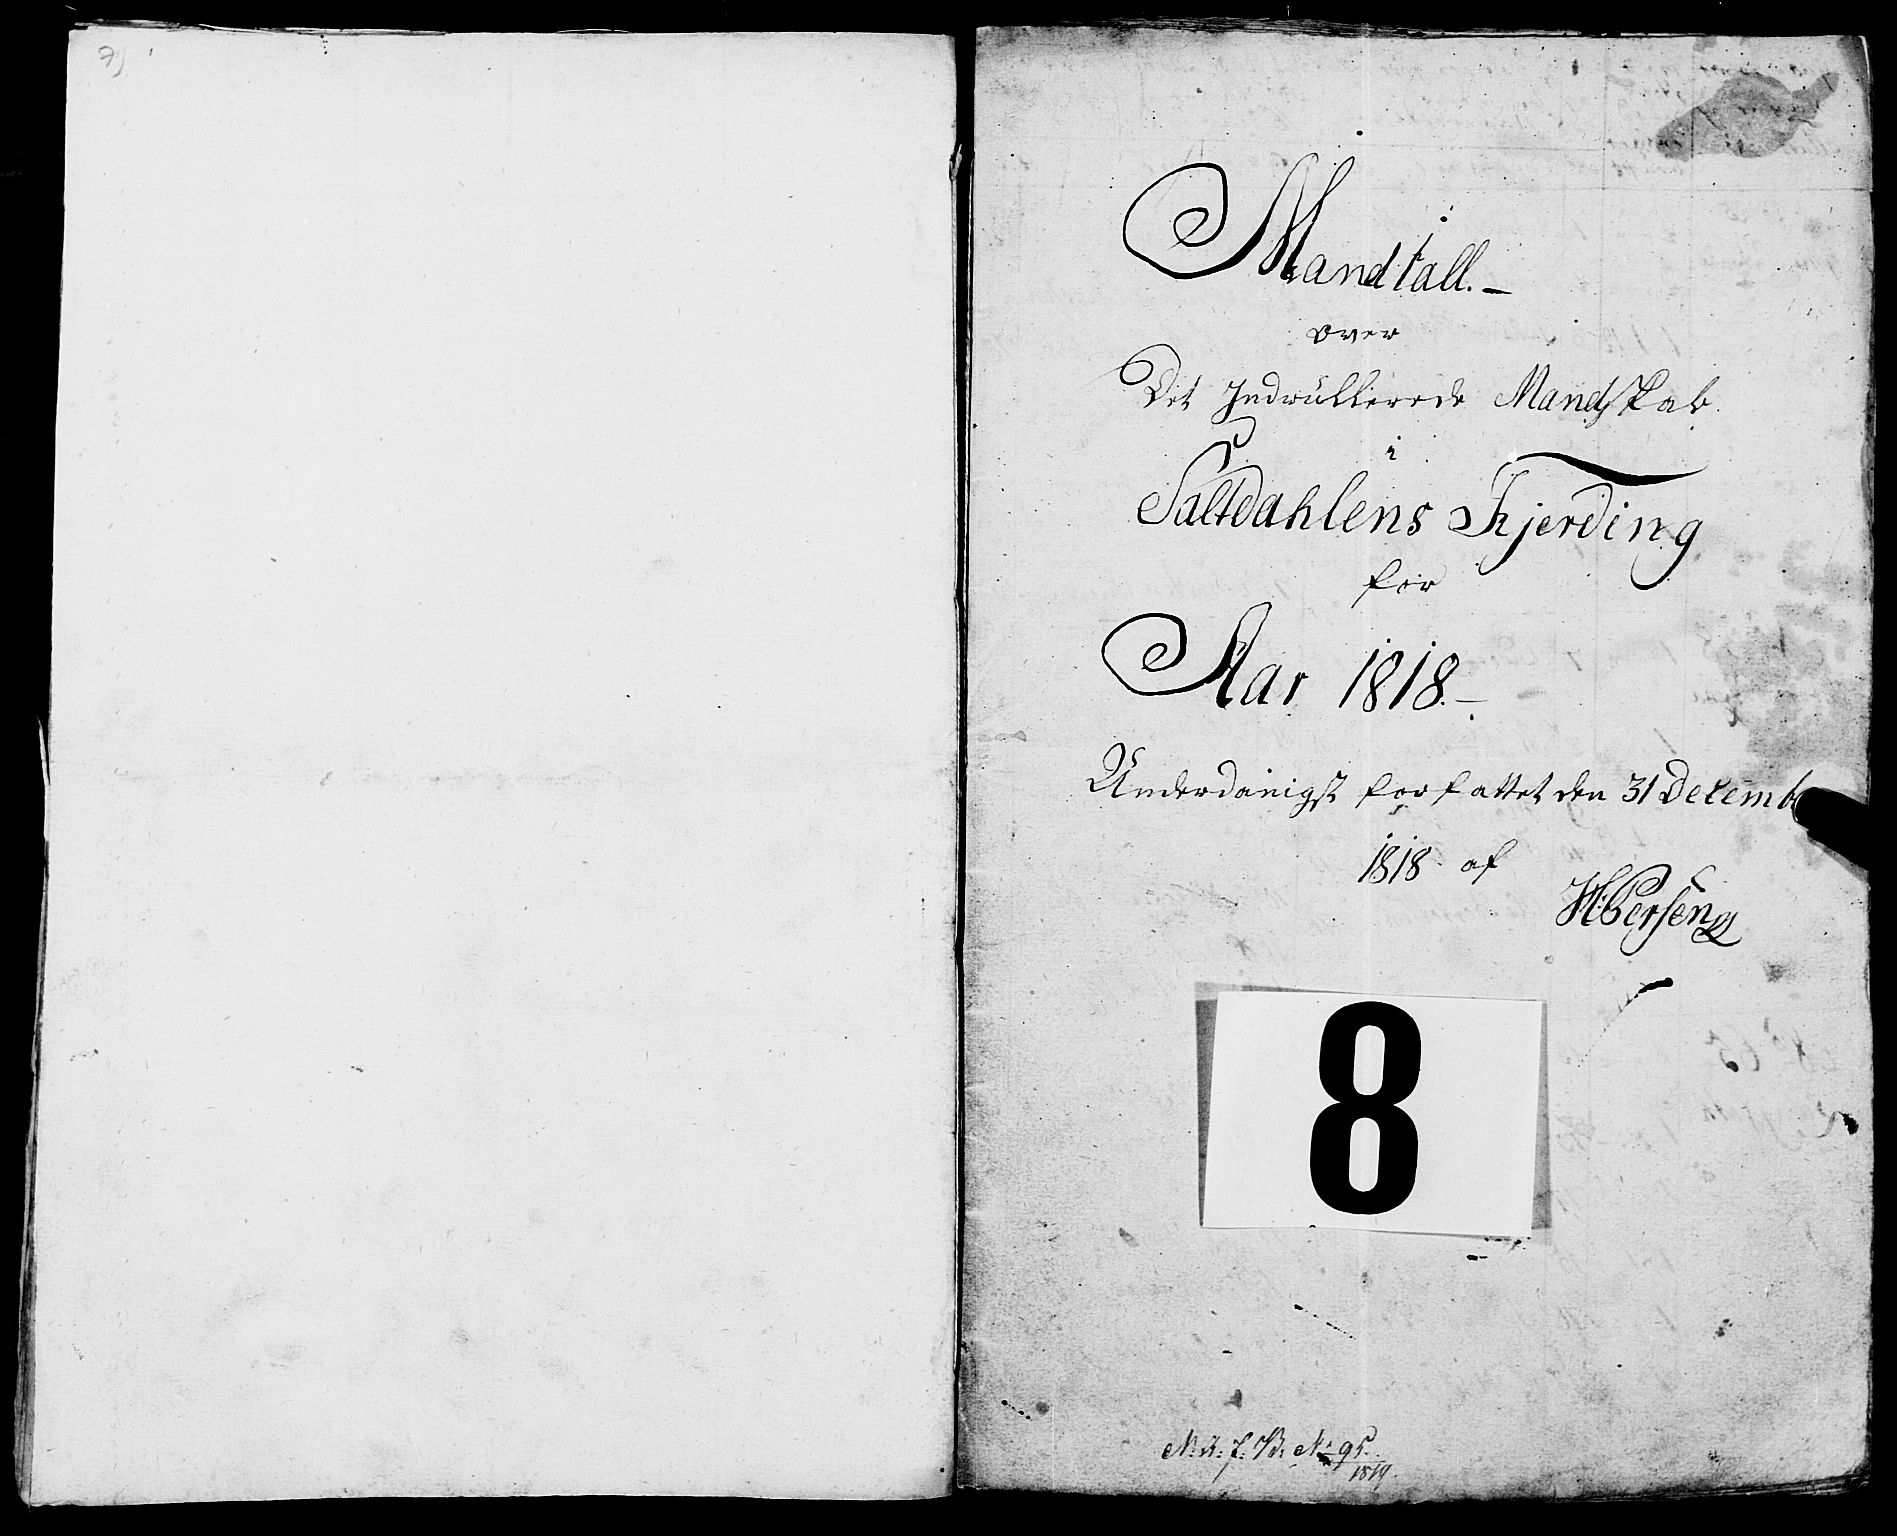 Mandtall. –
over
Det Indrullerede Mandskab.
i
Saltdahlens Fjerding
for
Aar 1818. –
Underdanigst forfattet den 31 Decemb
1818 af
8
No 95
1819.